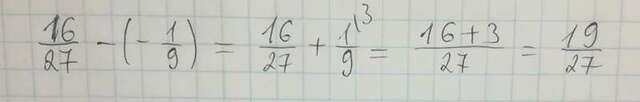 16/27 - (- 1/9) = 16/27 + 1\3/9 = 16+3/27 = 19/27